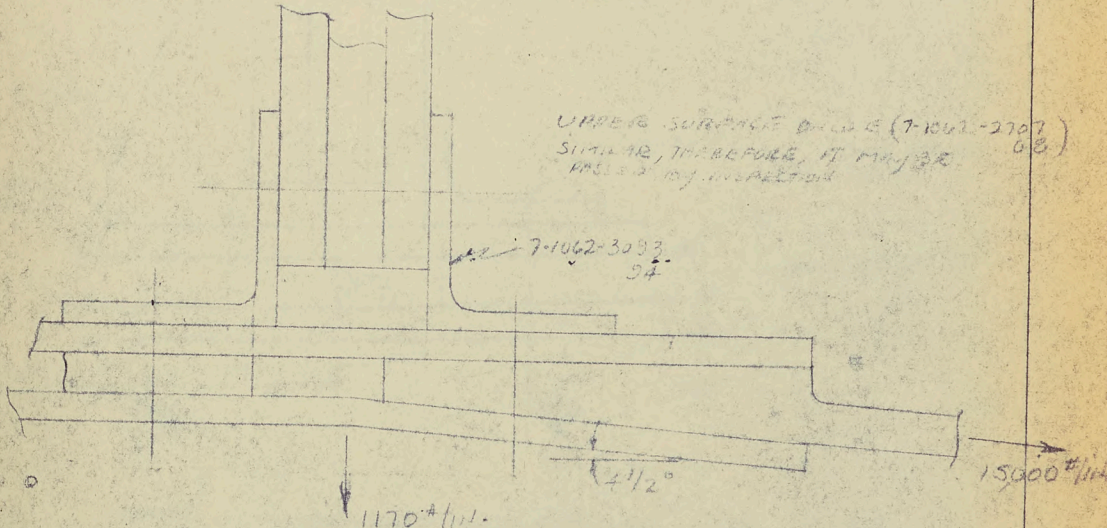 UPPER SURFACE (7-1062-2707
68)
SIMILAR, THEREFORE, IT MAY BE
PASSED BY INSPECTION
7-1062-3093
94
4 1/2°
15,000 #/IN.
1170 #/IN.